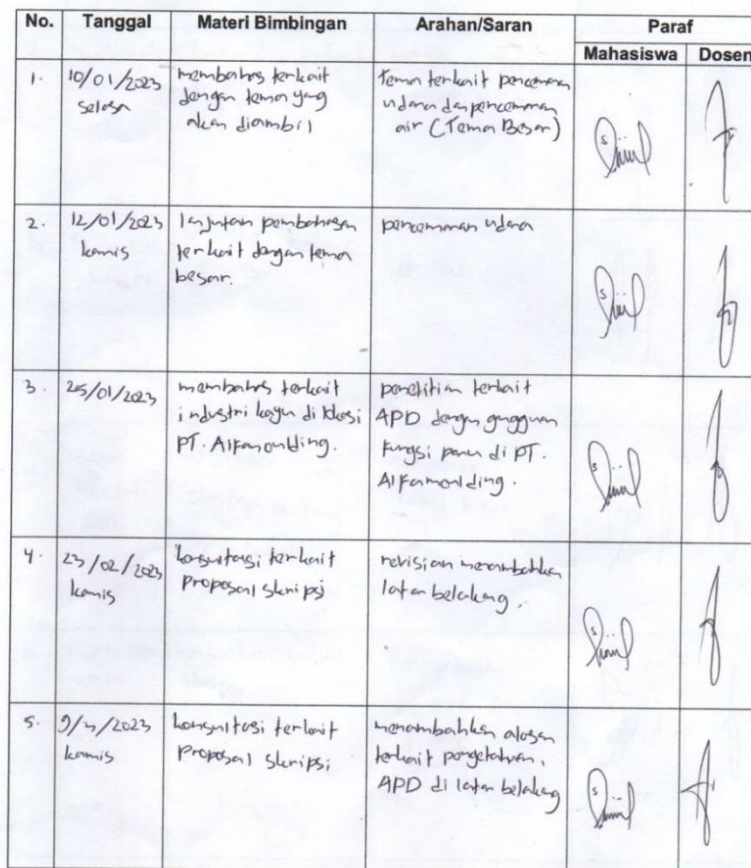 No. Tanggal Materi Bimbingan Arahan/Saran Paraf
Mahasiswa Dosen
1. 10/01/2023 selasa
membahas terkait
dengan tema yang
akan diambil
tema terkait pencemaran
udara dan pencemaran
air (Tema Besar)
2. 12/01/2023
kamis
lanjutan pembahasan
terkait dengan tema
besar.
pencemaran udara
3. 25/01/2023
membahas terkait
industri kayu di lokasi
PT. Alfamoulding.
penelitian terkait
APD dengan gangguan
fungsi paru di PT.
Alfamoulding.
4. 23/02/2023
kamis
konsultasi terkait
proposal skripsi
revisian menambahkan
latar belakang.
5. 9/3/2023
kamis
konsultasi terkait
proposal skripsi
menambahkan alasan
terkait pengetahuan,
APD di latar belakang